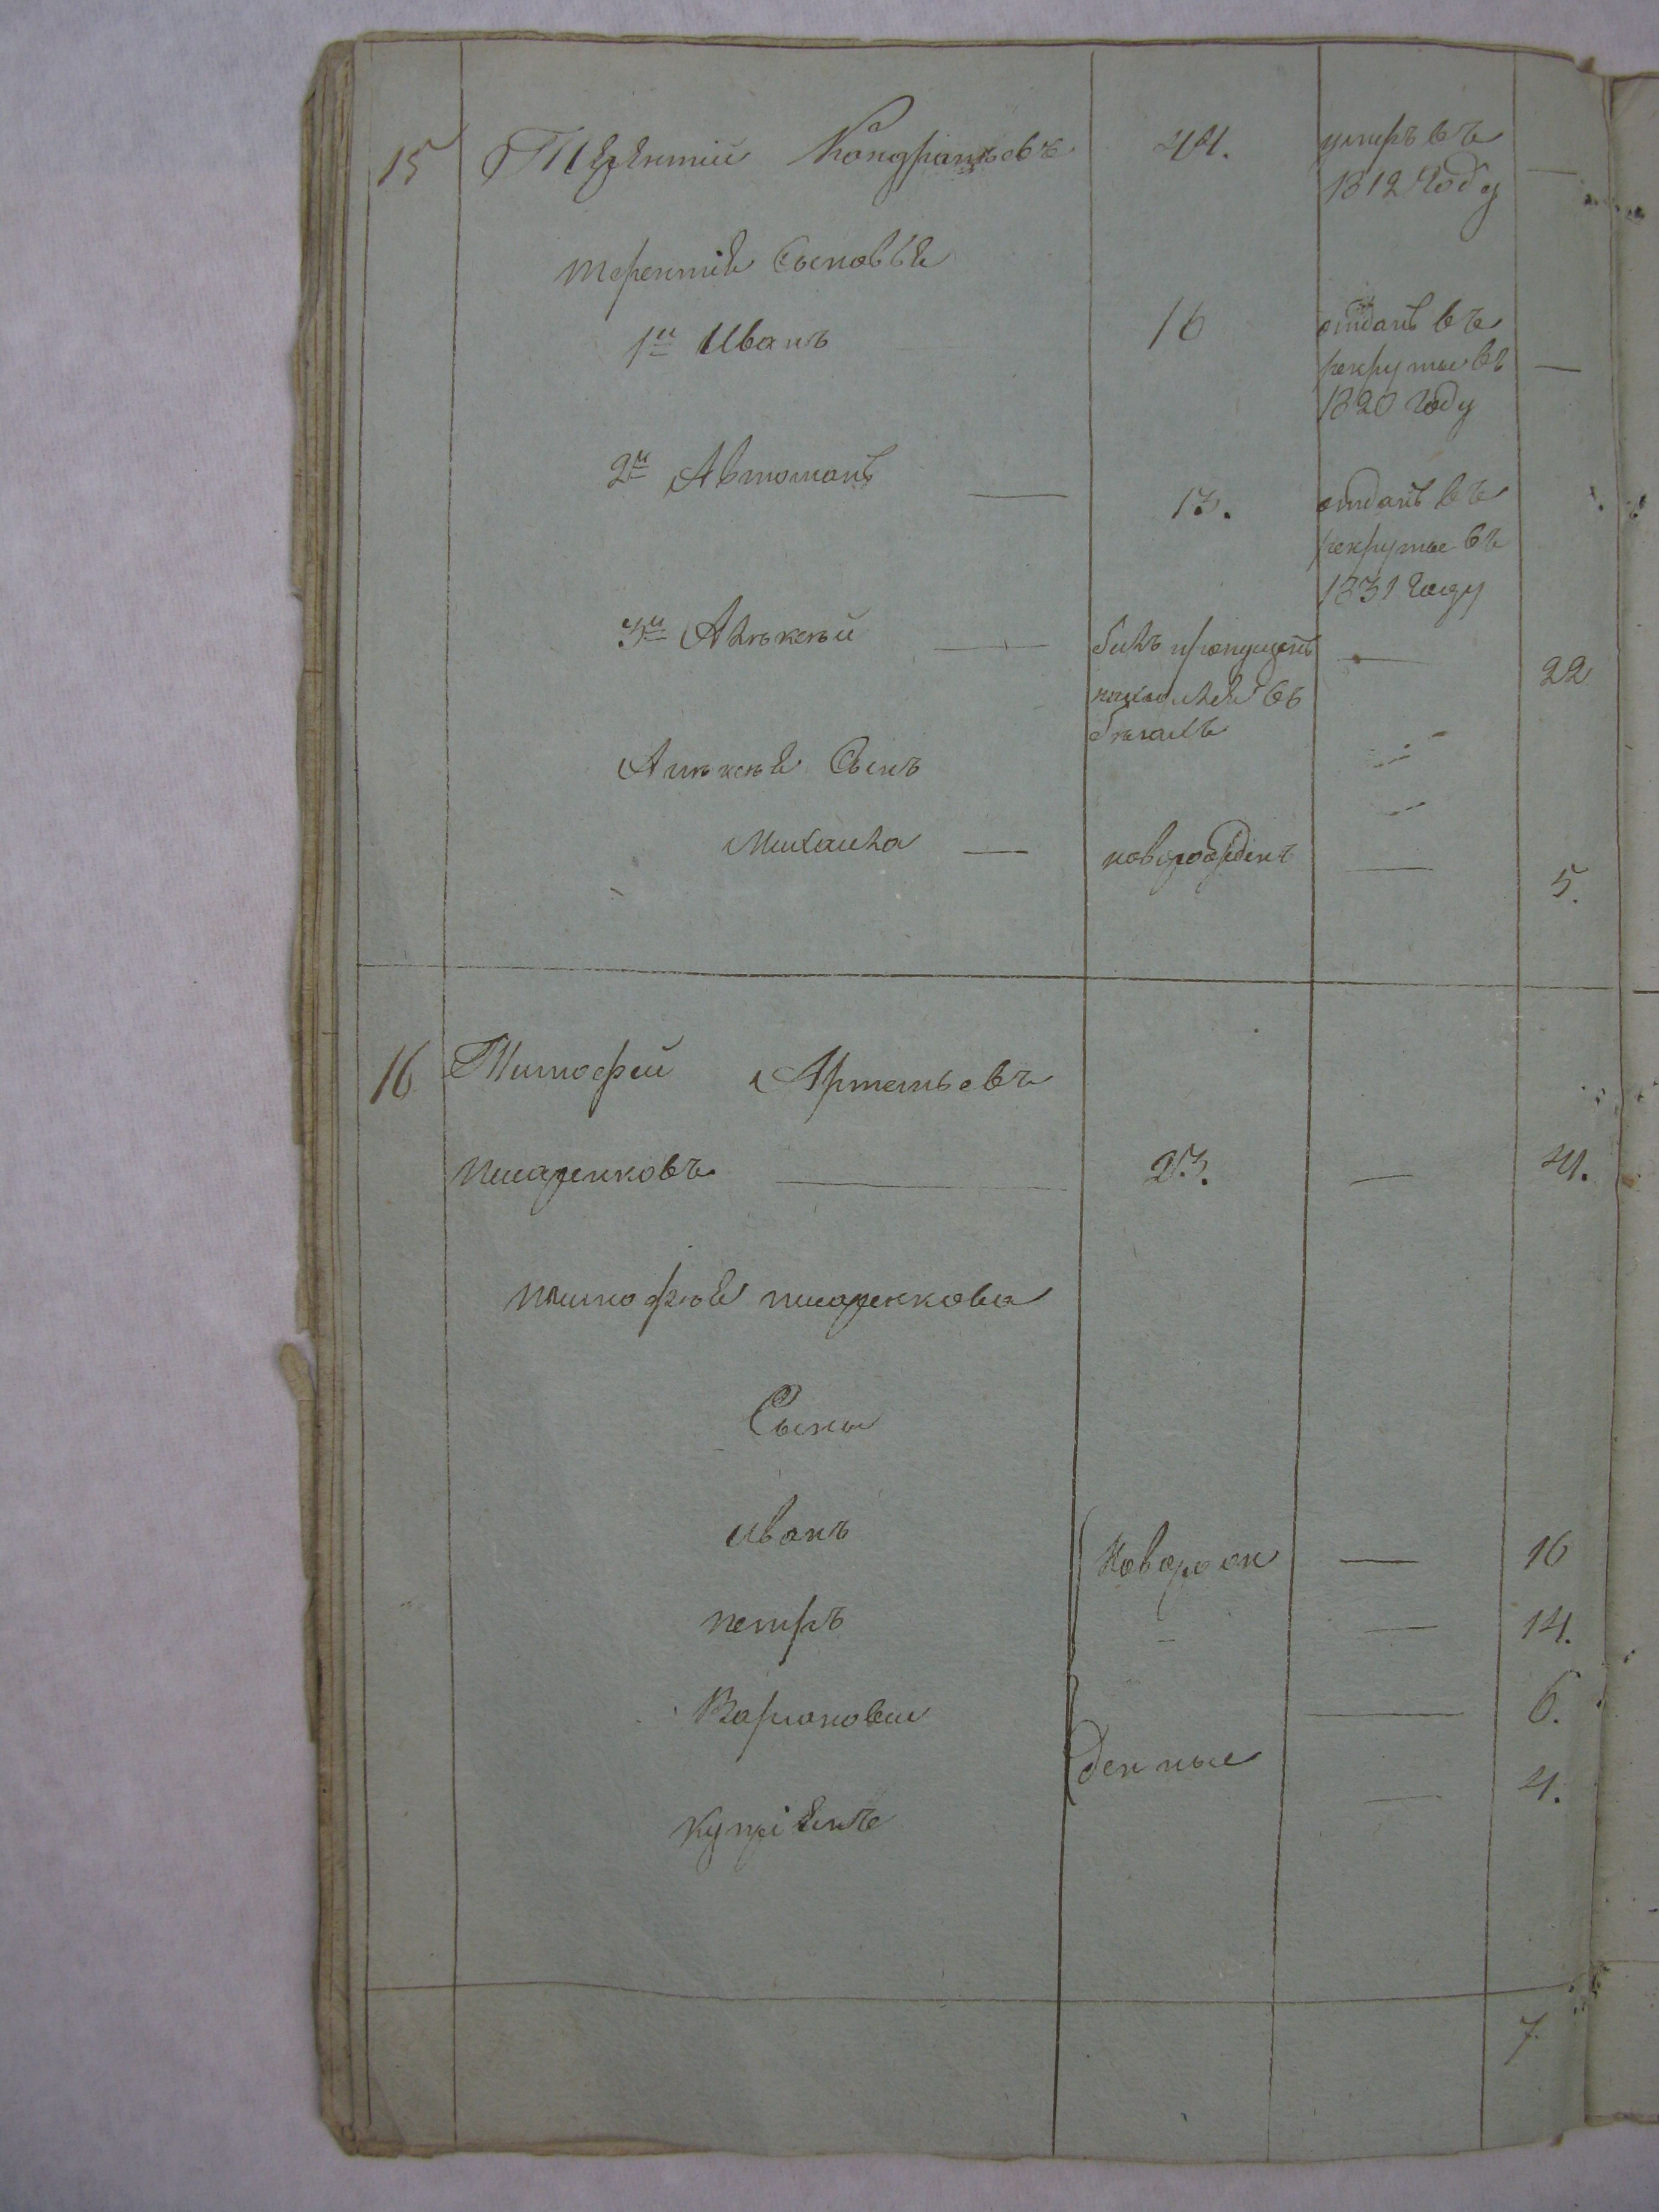 15 Терентий Кондратьевъ 44. умеръ въ
1812 году —
терентія Сыновья
1й Иванъ 16 отданъ въ
рекруты въ —
1820 году
2й Автоманъ — 13. отданъ въ
рекруты въ
1831 году
3й Алѣксѣй — былъ пропущенъ — 22
въ
бѣгахъ
Алѣксѣя Сынъ
Михаила — новорожденъ — 5.
16 Тимофей Артемьевъ
писаренковъ — 23. — 41.
тимофѣя писаренкова
Сыны
иванъ новорож — 16
петръ — 14.
Варфоломей — 6.
денные
купріянъ — 4.
7.